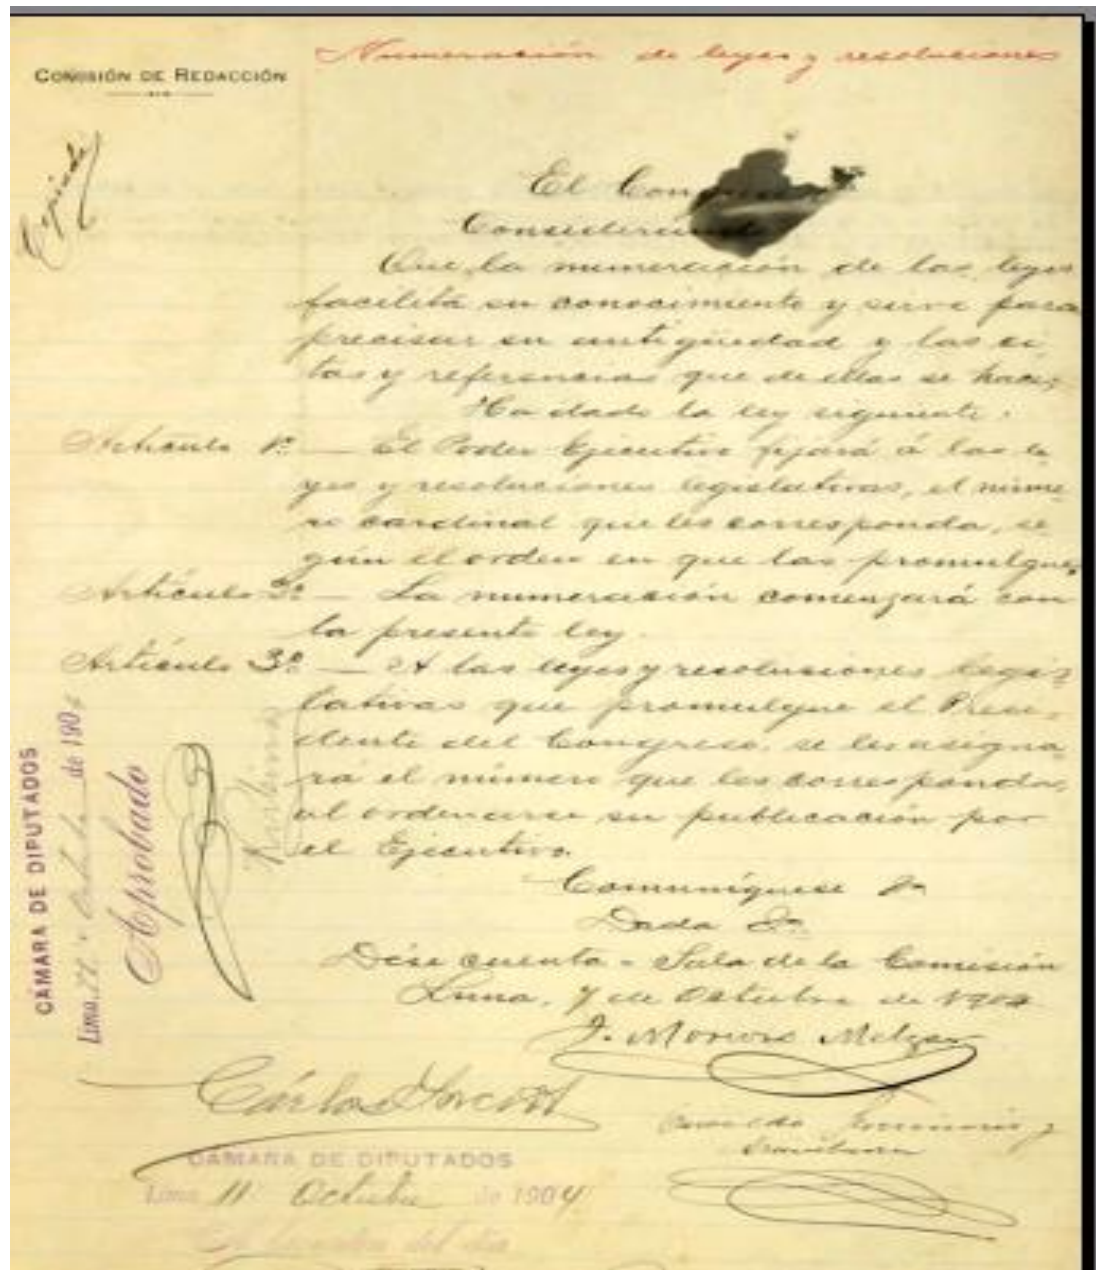 Numeración de leyes y resoluciones
COMISIÓN DE REDACCIÓN
Copiado
El Congreso
Considerando
Que la numeración de las leyes
facilita su conocimiento y sirve para
precisar su antigüedad y las ci
tas y referencias que de ellas se hacen;
Ha dado la ley siguiente:
Artículo 1º — El Poder Ejecutivo fijará á las le
yes y resoluciones legislativas, el núme
ro cardinal que les corresponda, se
gún el orden en que las promulgue.
Artículo 2º — La numeración comenzará con
la presente ley.
Artículo 3º — A las leyes y resoluciones legis
lativas que promulgue el Presi
dente del Congreso, se les asigna
rá el número que les corresponda,
al ordenarse su publicación por
el Ejecutivo.
Comuníquese &a
Dada &a
Dése cuenta - Sala de la Comisión
Lima, 7 de Octubre de 1904
CÁMARA DE DIPUTADOS
Lima, Octubre de 1904
Aprobado
Carlos
CÁMARA DE DIPUTADOS
Lima 11 Octubre de 1904
del día